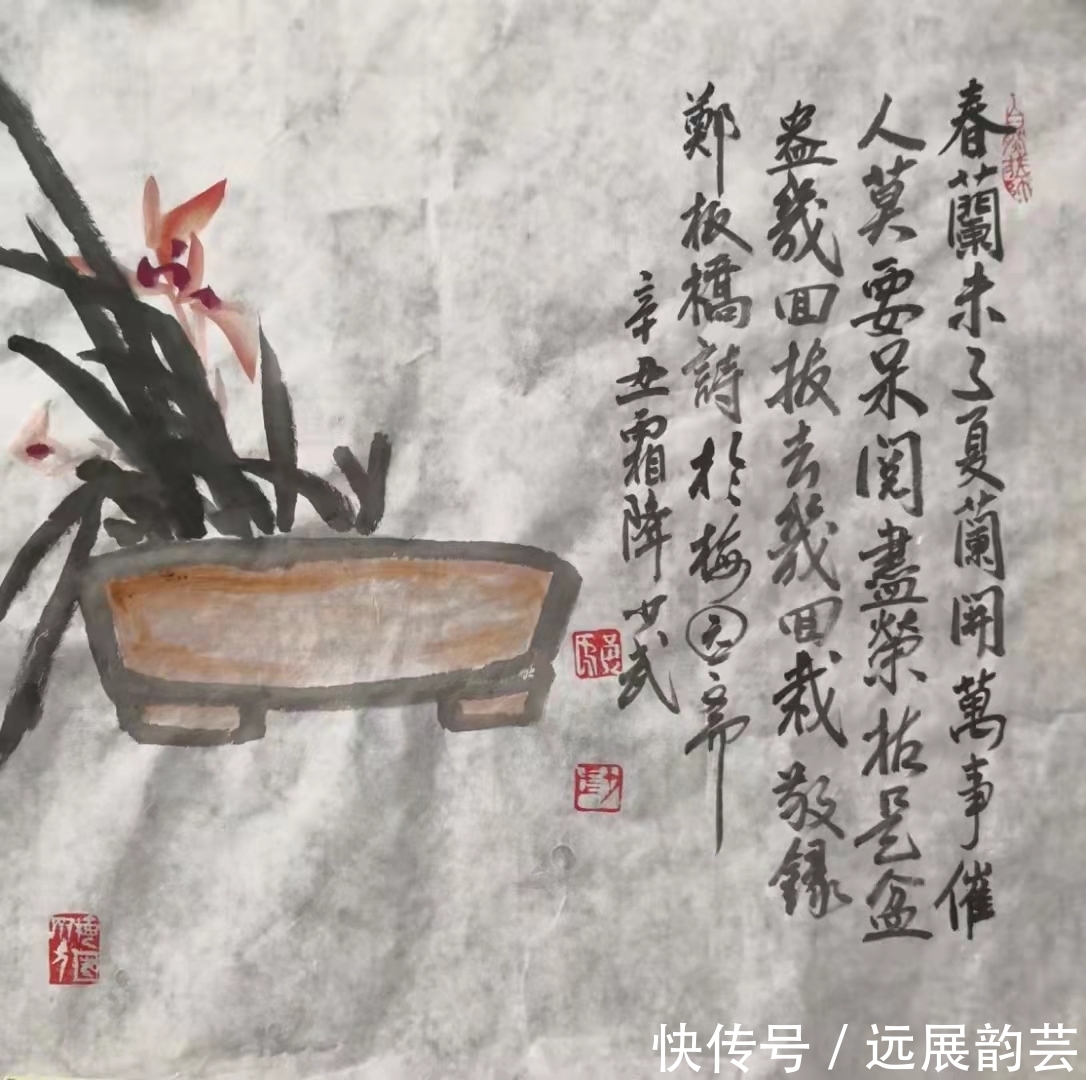 春蘭未了夏蘭開萬事催
人莫要呆閱盡榮枯是盆
盎幾回拔去幾回栽敬錄
鄭板橋詩於梅园斋
辛丑霜降少武
快传号 / 远展韵芸